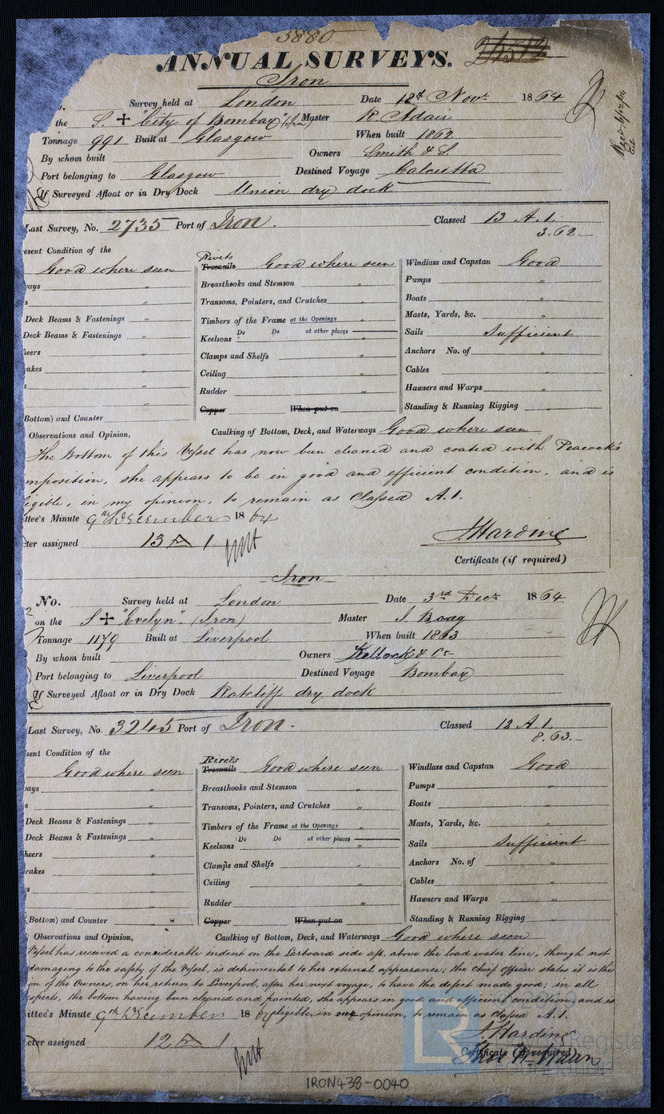 5880
ANNUAL SURVEYS.
Iron
Survey held at London Date 12th Novr. 1864
the S. + "City of Bombay" (Iron) Master R. Adair
Tonnage 991 Built at Glasgow When built 1862
By whom built Owners Smith & S.
Port belonging to Glasgow Destined Voyage Calcutta
If Surveyed Afloat or in Dry Dock Union dry dock
Last Survey, No. 2735 Port of Iron. Classed 13 A.1.
3.62.
esent Condition of the
Good where seen Rivets Treenails Good where seen Windlass and Capstan Good
ays " Breasthooks and Stemson " Pumps "
s " Transoms, Pointers, and Crutches " Boats "
Deck Beams & Fastenings " Timbers of the Frame at the Openings " Masts, Yards, &c. "
Deck Beams & Fastenings " Keelsons Do Do at other places Sails Sufficient
heers " Clamps and Shelfs " Anchors No. of "
akes " Ceiling " Cables "
Rudder " Hawsers and Warps "
Bottom) and Counter Copper When put on Standing & Running Rigging "
Observations and Opinion, Caulking of Bottom, Deck, and Waterways Good where seen
The Bottom of this Vessel has now been cleaned and coated with Peacock's
mposition, she appears to be in good and efficient condition, and is
igible, in my opinion, to remain as Classed A.1.
ttee's Minute 9th December 1864
cter assigned 13 A 1
J Hardine
Certificate (if required)
Iron
No. Survey held at London Date 3rd Decr. 1864
on the S + "Evelyn" (Iron) Master J.
Tonnage 1179 Built at Liverpool When built 1863
By whom built Owners Kellock & Co
Port belonging to Liverpool Destined Voyage Bombay
If Surveyed Afloat or in Dry Dock Ratcliff dry dock
Last Survey, No. Port of Iron. Classed 12 A.1.
8.63.
sent Condition of the
Good where seen Rivets Treenails Good where seen Windlass and Capstan Good
ays " Breasthooks and Stemson " Pumps "
s " Transoms, Pointers, and Crutches " Boats "
Deck Beams & Fastenings " Timbers of the Frame at the Openings " Masts, Yards, &c. "
Deck Beams & Fastenings " Keelsons Do Do at other places Sails Sufficient
heers " Clamps and Shelfs " Anchors No. of "
rakes " Ceiling " Cables "
s " Rudder " Hawsers and Warps "
Bottom) and Counter " Copper When put on Standing & Running Rigging "
Observations and Opinion, Caulking of Bottom, Deck, and Waterways Good where seen
Vessel has received a considerable indent on the Larboard side aft, above the load water line, though not
damaging to the safety of the Vessel, is detrimental to her external appearance; the Chief Officer states it is the
on of the Owners, on her return to Liverpool, after her next voyage, to have the defect made good, in all
spects, the bottom having been cleaned and painted, she appears in good and efficient condition, and is
ittee's Minute 9th December 1864 eligible, in our opinion, to remain as Classed A.1.
cter assigned 12 A 1
J Hardine
Certificate (if required)
IRON438-0040